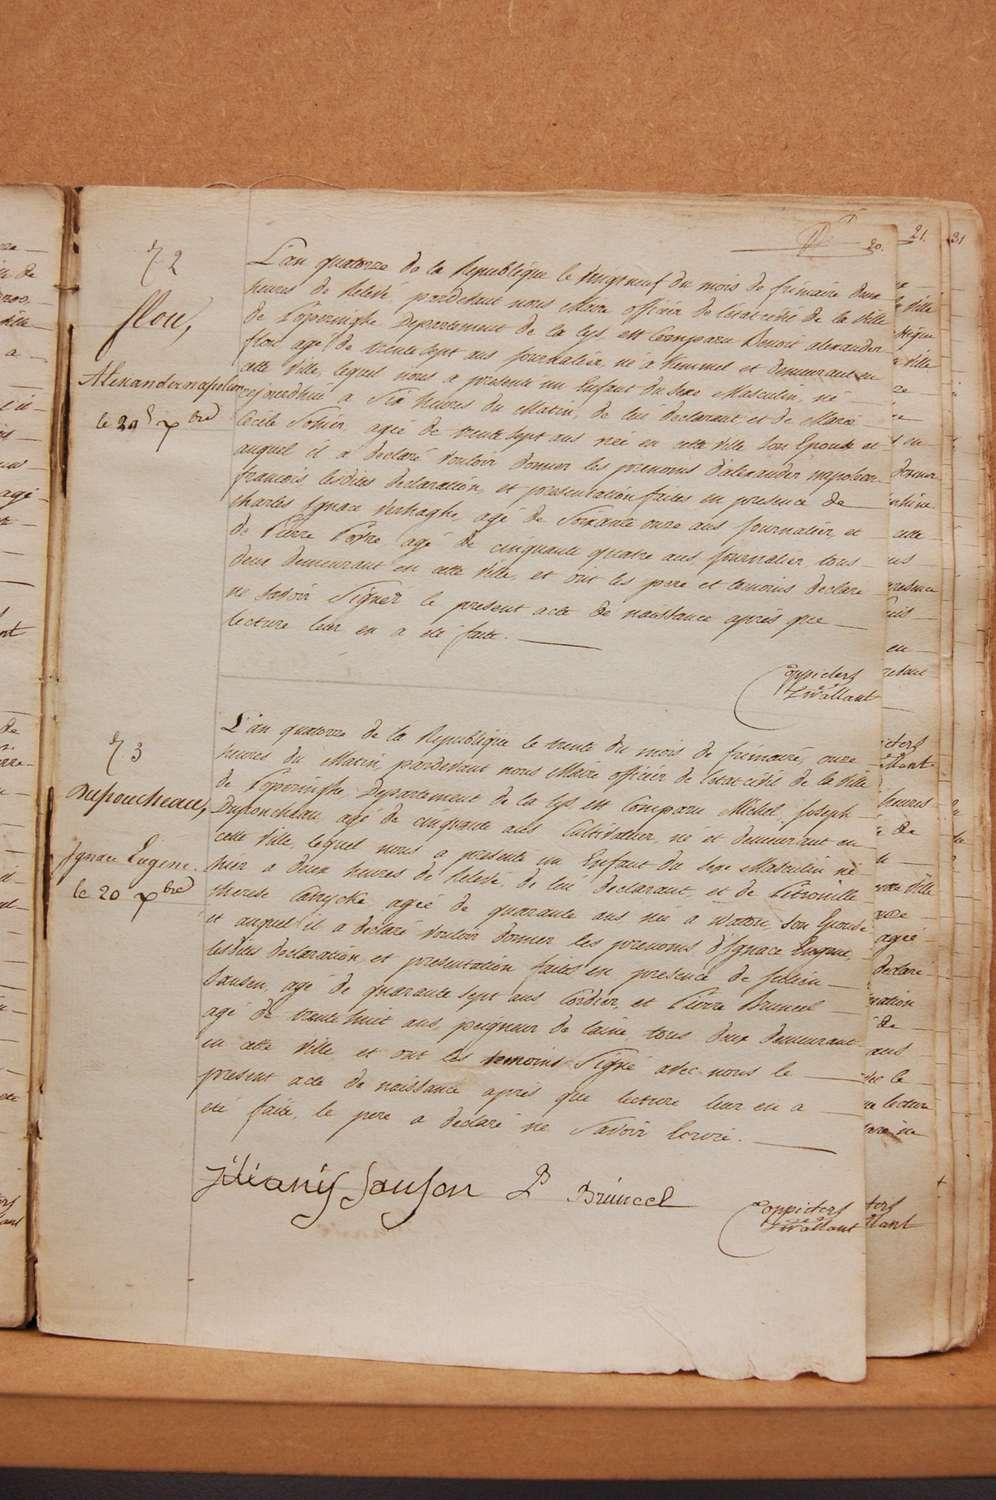 20.
21.
31
72
flou,
Alexander napoleon
le 29 Xbre
L'an quatorze de la Republique le vingt neuf du mois de frimaire deux
heures de Relevé, pardevant nous Maire officier de l'etat civil de la Ville
de Poperinghe Departement de la Lys, est Comparu Benoit alexander
flou agé de trente sept ans Journalier, né à Kemmel et Demeurant en
cette Ville, lequel nous a presenté un Enfant du Sexe Masculin, né
cejourdhui à Six heures du Matin, de lui declarant et de Marie
Cecile Sohier, agée de trente sept ans née en cette Ville Son Epouse et
auquel il a declaré vouloir donner les prenoms d'alexander napoleon
francois lesdites declaration, et presentation faites en presence de
Charles Ignace Verhaghe, agé de Soixante onze ans Journalier, et
de Pierre agé de cinquante quatre ans Journalier, tous
deux demeurant en cette Ville, et ont les pere et temoins declaré
ne savoir Signer le present acte de naissance après que
lecture leur en a été faite.
73
Dupoucheau,
Ignace Eugene.
le 20 Xbre
L'an quatorze de la Republique le trente du mois de frimaire, onze
heures du Matin, pardevant nous Maire officier de l'etat civil de la Ville
de Poperinghe Departement de la Lys est Comparu Michel Joseph
Duponcheau, agé de cinquante ans Cultivateur, né et demeurant en
cette Ville, lequel nous a presenté un Enfant du Sexe Masculin né
hier a Deux heures de Relevé, de lui declarant, et de Petronille
therese agée de quarante ans née a Watou, Son Epouse
et auquel il a declaré vouloir donner les prenoms d'Ignace Eugene,
lesdites declaration, et presentation faites en presence de
Sansen, agé de quarante sept ans Cordier, et Pierre Bruneel
agé de trente huit ans, peigneur de laine tous deux demeurant
en cette Ville et ont les temoins Signé avec nous le
present acte de naissance après que lecture leur en a
été faite, le pere a declaré ne Savoir ecrire.
P Bruneel